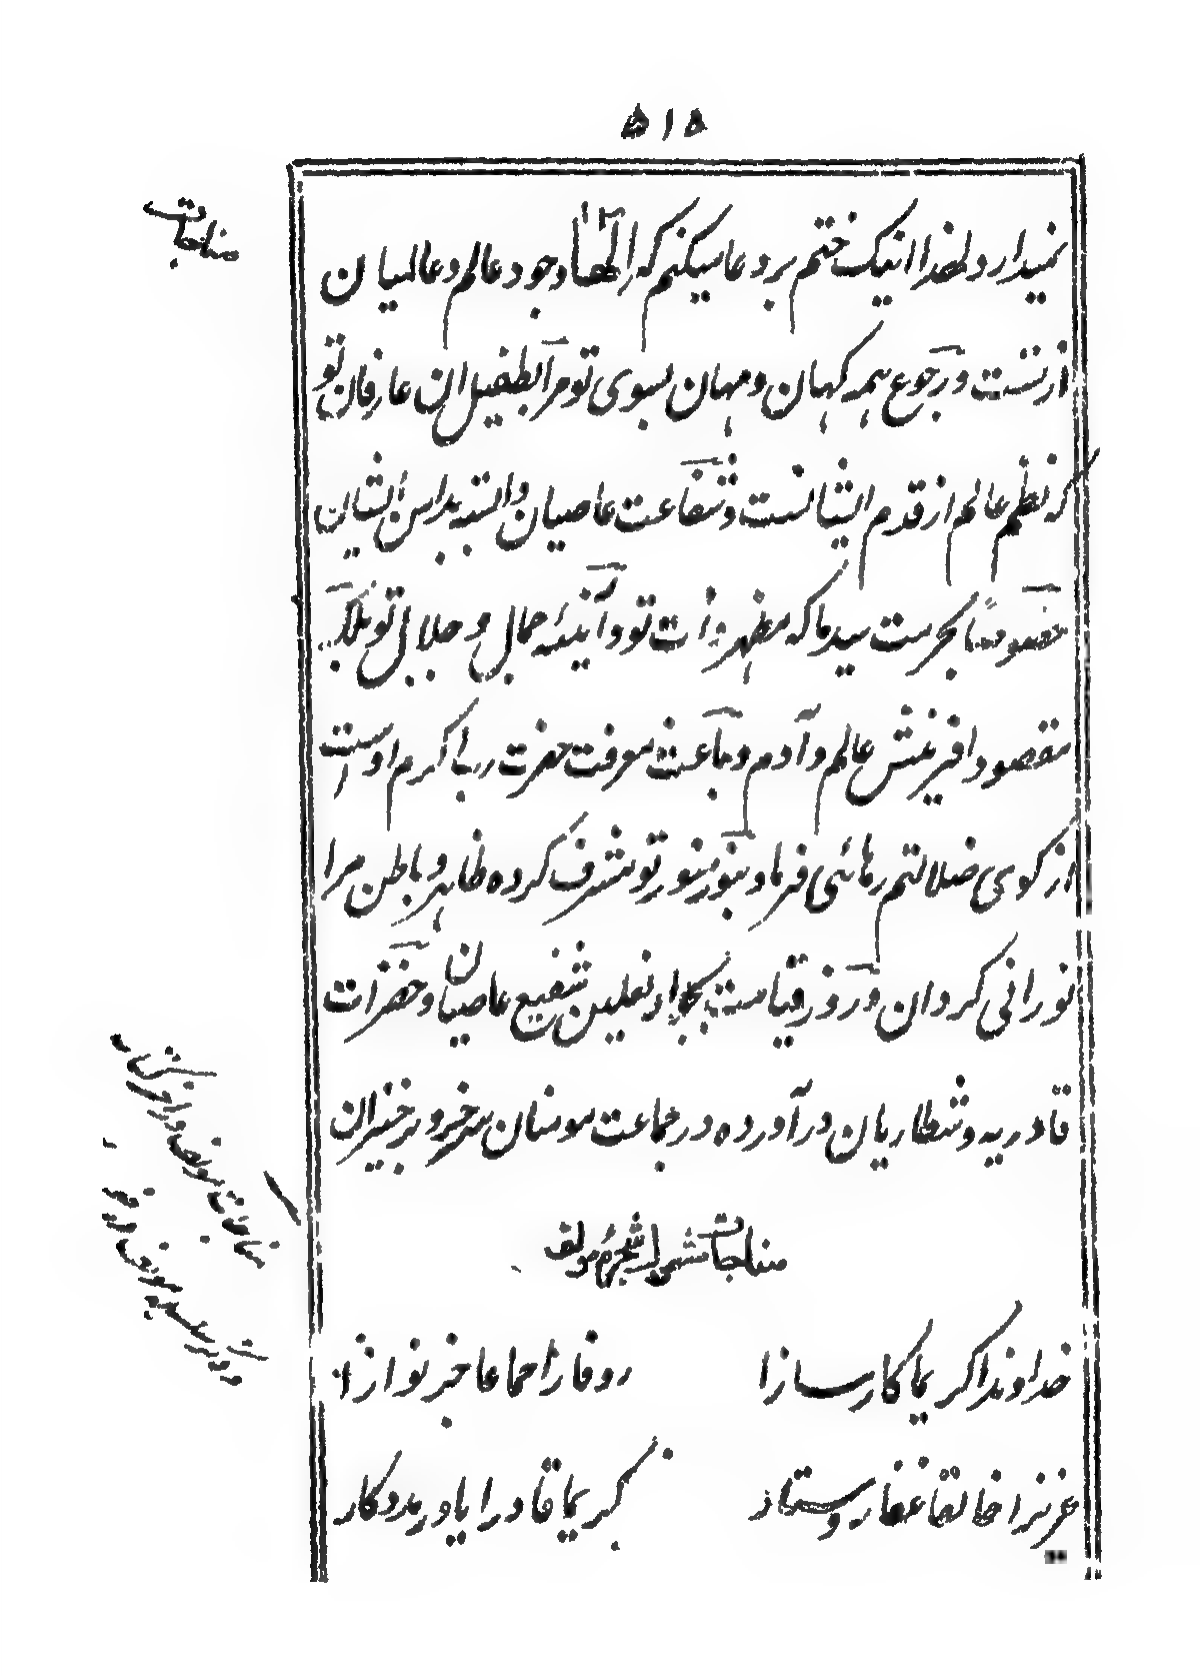 ۵۱۵
مناجات
نمیدارد و لهٰذا اینک ختم بر دعا میکنم که الٰهَا وجود عالم و عالمیان
از تست و رجوع همه کهان و مهان بسوی تو مرا بطفیل این عارفان تو
که نظم عالم از قدم ایشانست و شفاعت عاصیان وابسته بدامن ایشان
خصوصاً بحرمت سید ما که مظهر ذات تو و آئینهٔ جمال و جلال تو بلکه
مقصود افرینش عالم و آدم و باعث معرفت حضرت رب اکرم اوست
از کوی ضلالتم رهائی فرما و بنور منور تو مشرف کرده ظاهر و باطن مرا
نورانی گردان و روز قیامت نعلین شفیع عاصیان و حضرات
قادریه و شطاریان در آورده در جماعت مومنان سرخرو برخیزان
مناجات شجرهٔ مولف
خداوندا کریما کارسازا
روفا راحما عاجز نوازا
عزیزا خالقا غفار و ستار
کریما قادرا یاور مددگار
مناجات مولف در اخر کتاب
و ذکر سلسله مولف